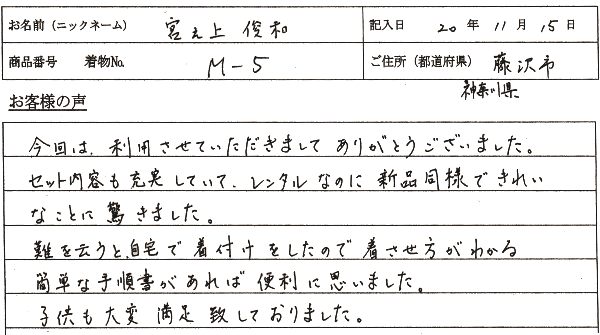 お名前（ニックネーム） 宮ノ上 俊和 記入日 20 年 11 月 15 日
商品番号 着物No. M-5 ご住所（都道府県） 藤沢市
神奈川県
お客様の声
今回は、利用させていただきまして ありがとうございました。
セット内容も充実していて、レンタルなのに 新品同様できれい
なことに驚きました。
難を云うと、自宅で着付けをしたので着させ方がわかる
簡単な手順書があれば 便利に思いました。
子供も大変 満足致しておりました。